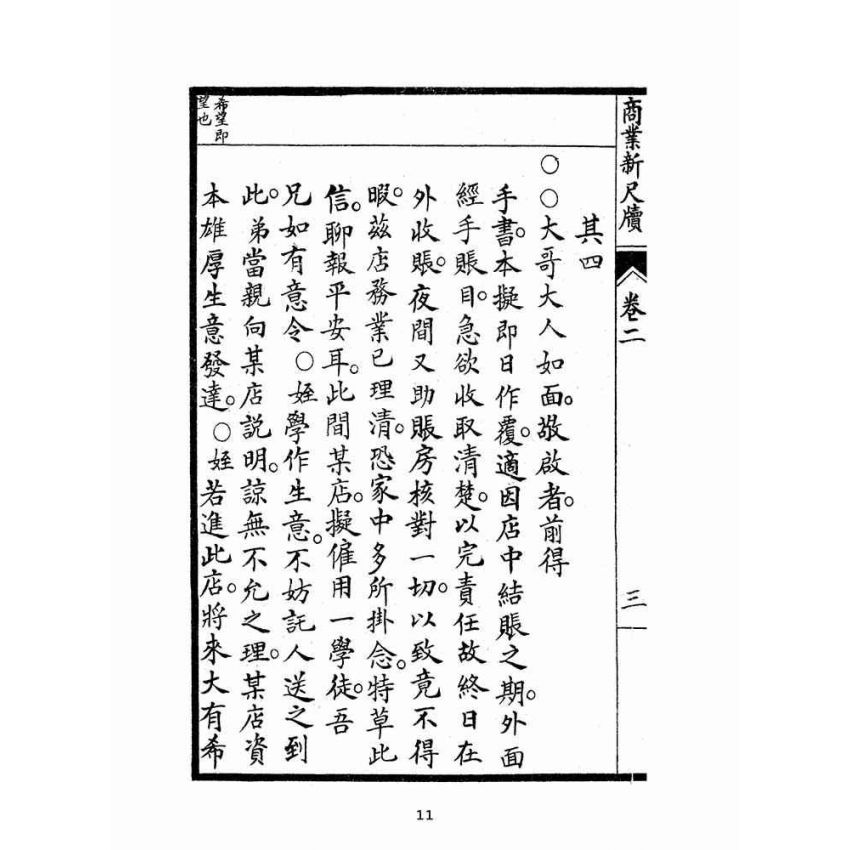 商業新尺牘
卷二
三
其四
○○大哥大人如面。敬啟者。前得
手書。本擬即日作覆。適因店中結賬之期。外面
經手賬目。急欲收取清楚。以完責任故終日在
外收賬。夜間又助賬房核對一切。以致竟不得
暇。茲店務業已理清。恐家中多所掛念。特草此
信。聊報平安耳。此間某店。擬僱用一學徒。吾
兄如有意令○姪學作生意。不妨託人送之到
此。弟當親向某店説明。諒無不允之理。某店資
本雄厚生意發達。○姪若進此店。將來大有希
希望即
望也
11